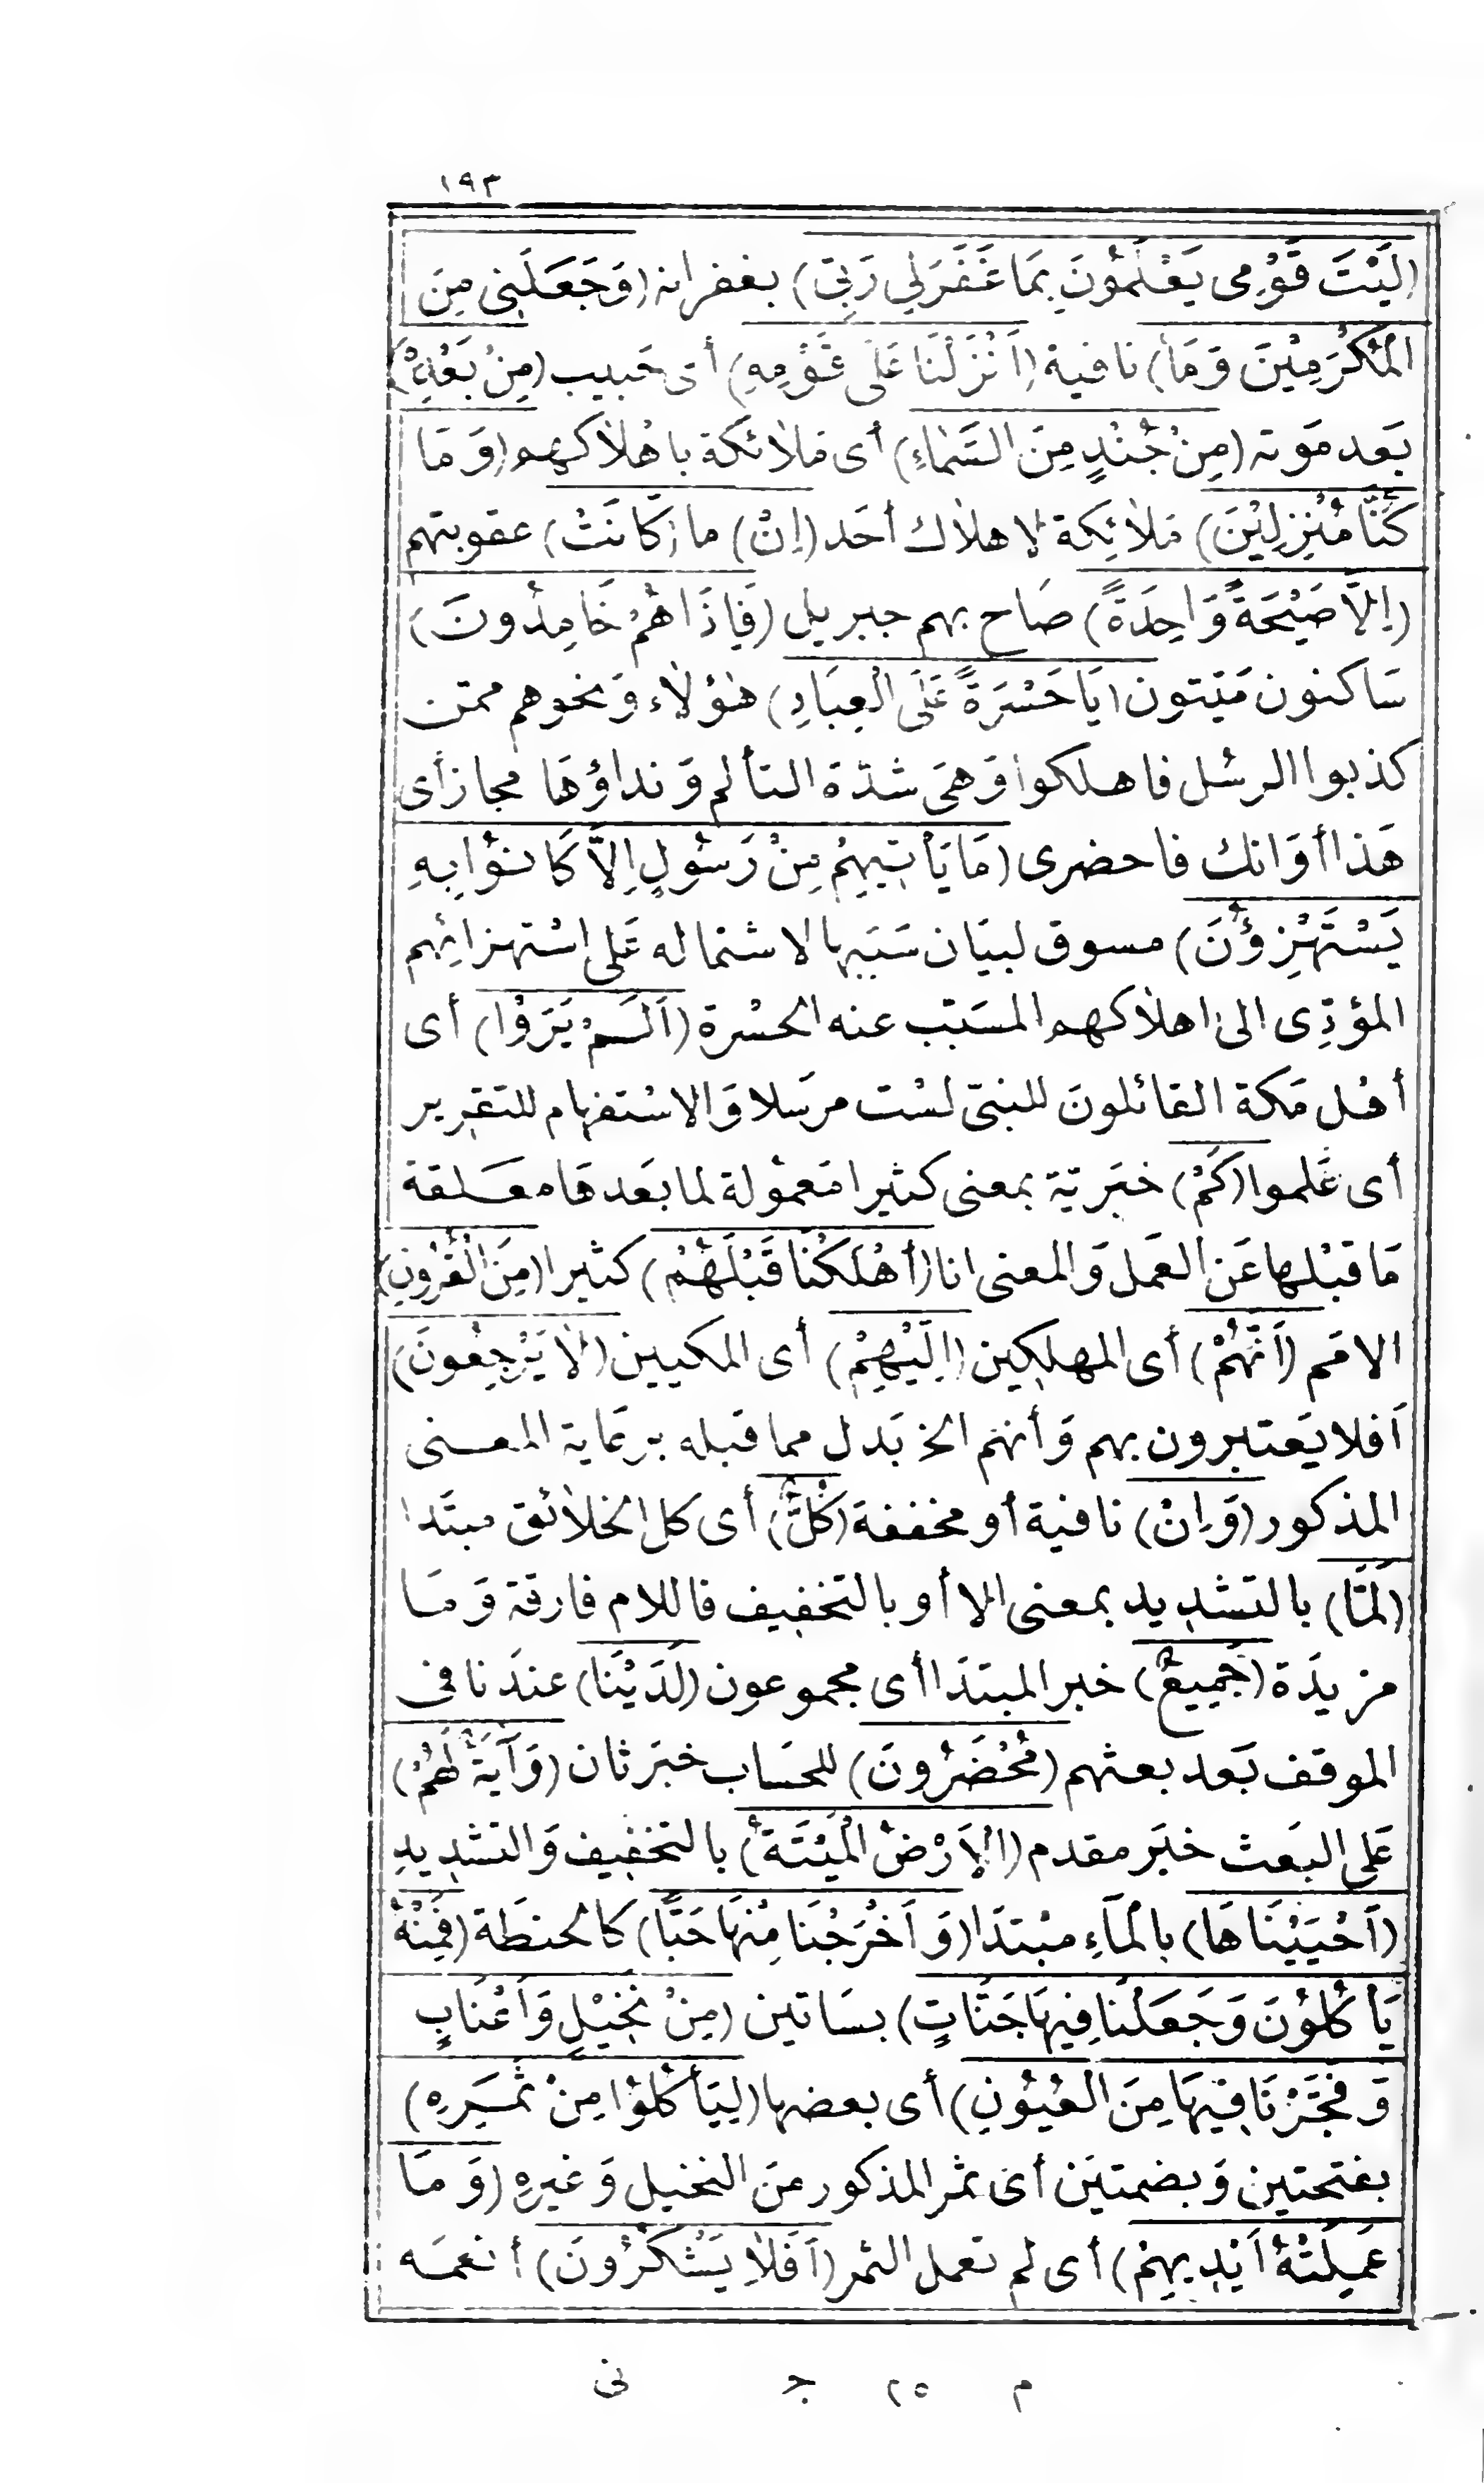 ١٩٣
(لَيْتَ قَوْمِى يَعْلَمُوْنَ بِمَا غَفَرَلِي رَبِّىْ) بغفرانه (وَجَعَلَنِى مِنَ
الْمُكْرَمِيْنَ وَمَا) نافية (اَنْزَلْنَا عَلٰى قَوْمِهِ) أى حبيب (مِنْ بَعْدِهِ)
بَعد مَوته (مِنْ جُنْدٍ مِنَ السَّمَاءِ) أى مَلائكة باهْلاكهم (وَمَا
كُنَّا مُنْزِلِيْنَ) مَلائِكة لاهلاك أحَد (اِنْ) ما (كَانَتْ) عقوبتهم
(اِلَّا صَيْحَةً وَاحِدَةً) صَاح بهم جبريل (فَاِذَا هُمْ خَامِدُونَ)
سَاكنون مَيّتون (يَا حَسْرَةً عَلَى الْعِبَادِ) هٰؤلاء وَنحوهم ممّن
كذبوا الرسُل فاهلكوا وَهىَ شدّة التألم وَنداؤهَا مجاز أى
هَذا أوَانك فاحضرى (مَا يَأتِيهِمْ مِنْ رَسُولٍ اِلَّا كَانُوْا بِهِ
يَسْتَهْزِؤُنَ) مسوق لبيَان سَبَبِها لاشتماله عَلى اسْتهزائِهم
المؤدِّى الى اهلاكهم المسَبّب عنه الحسْرة (اَلَمْ يَرَوْا) أى
أهْل مَكة القائلونَ للنبىّ لسْت مرسَلا وَالاسْتفهام للتقرير
أى عَلموا (كَمْ) خبَريّة بمعنى كثيرا مَعمُولة لما بَعدهَا معَلقة
مَا قبْلها عَن العَمل وَالمعنى انا (أهْلَكْنَا قَبْلَهُمْ) كثيرا (مِنَ الْقُرُونِ)
الامَم (اَنَّهُمْ) أى المهلكين (اِلَيْهِمْ) أى المكيين (لَا يَرْجِعُونَ)
اَفلا يَعتبرون بهم وَأنهم الخ بَدل مما قبله برعَاية المعنى
المذكور (وَاِنْ) نافية أو مخففة (كُلٌّ) أى كل الخلائق مبتَدا
(لَمَّا) بالتشديد بمعنى الا أو بالتخفيف فاللام فارقة وَمَا
مزيدَة (جَمِيعٌ) خبر المبتدَا أى مجموعون (لَدَيْنَا) عندَنا فى
الموقف بَعد بعثهم (مُحْضَرُونَ) للحسَاب خبَر ثان (وَآيَةٌ لَهُمْ)
عَلى البَعث خبَر مقدم (الْاَرْضُ الْمَيْتَةُ) بالتخفيف وَالتشديدِ
(اَحْيَيْنَاهَا) بالمَاءِ مبْتدَا (وَاَخْرَجْنَا مِنْهَا حَبًّا) كالحنطَة (فَمِنْهُ
يَأكُلُوْنَ وَجَعَلْنَا فِيهَا جَنَّاتٍ) بسَاتين (مِنْ نَخِيْلٍ وَاَعْنَابٍ
وَفَجَّرْنَا فِيْهَا مِنَ الْعُيُوْنِ) أى بعضها (لِيَأكُلُوْا مِنْ ثَمَرِهِ)
بفتحتين وَبضمتيَن أى ثمر المذكور منَ النخيل وَغيرهِ (وَمَا
عَمِلَتْهُ اَيْدِيهِمْ) أى لم تعمل الثمر (اَفَلَا يَشْكُرُونَ) أنعمَه
م ٢٥ ج نى